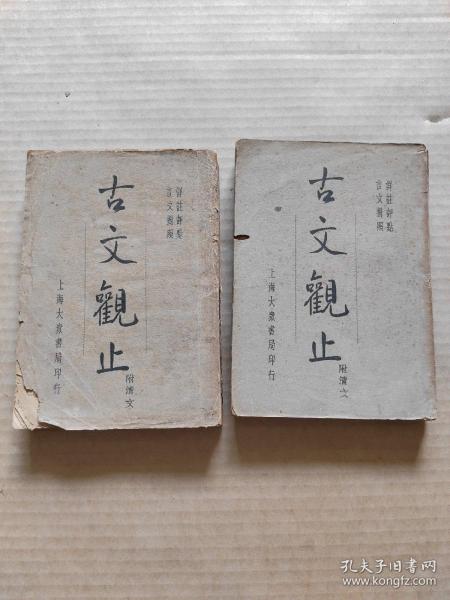 詳註評點
言文對照
古文觀止
附清文
上海大衆書局印行
詳註評點
言文對照
古文觀止
附清文
上海大衆書局印行
孔夫子旧书网
www.kongfz.com